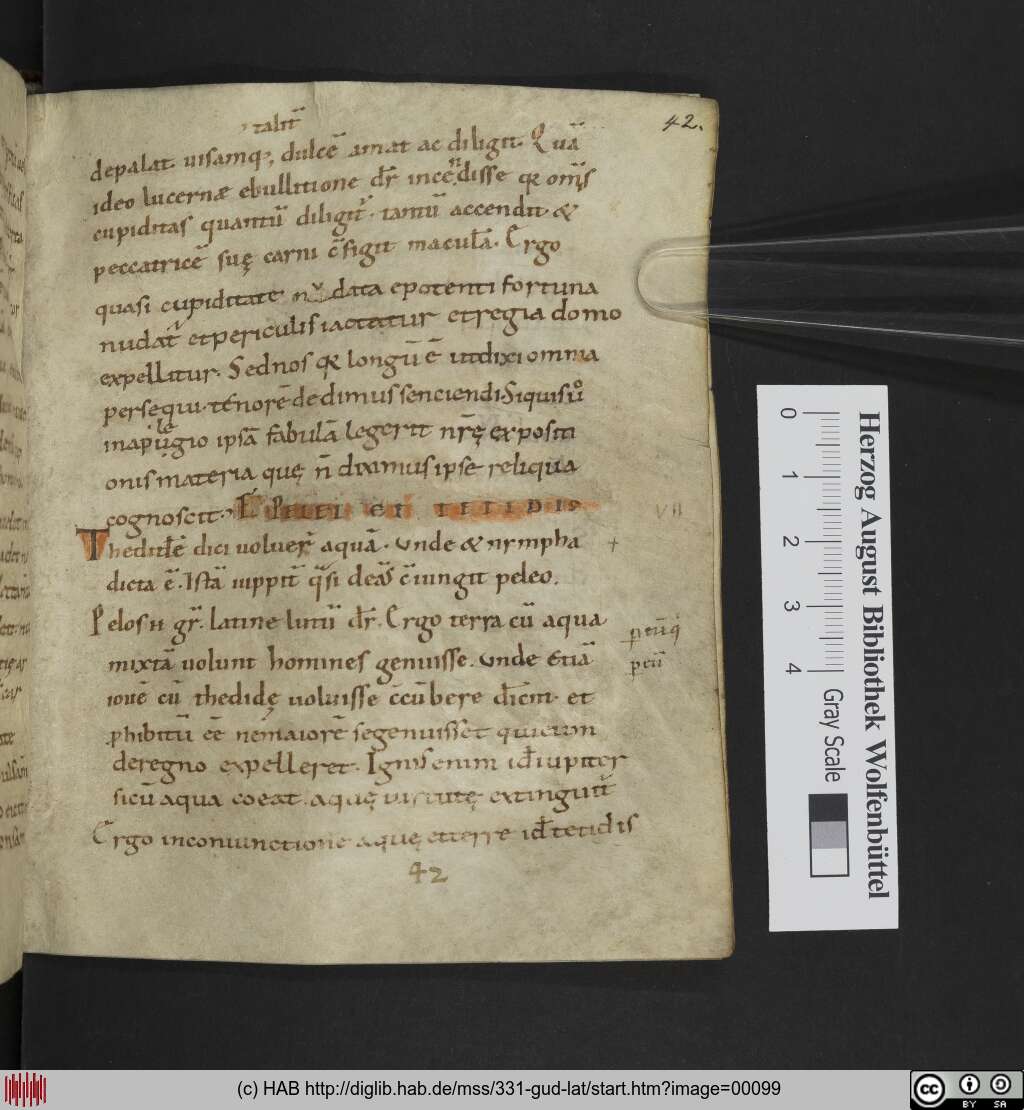 42.
talit̄
depalat. uisamq; dulcē amat ac diligit. Quā
ideo lucernæ ebullitione dr̄ incēndisse qr om̄is
cupiditas quantū diligit. tantū accendit. &
peccatricē suę carni c̄figit maculā. Ergo
quasi cupiditate nudata epotenti fortuna
nudat̄ et periculis iactatur et regia domo
expellitur. Sed nos qr longū ē ut dixi omnia
persequi. tenorē dedimus senciendi. Siquis u̅o
inapulegio ipsā fabulā legerit nr̄ę expositi
onis materia quę n̄ diximus ipse reliqua
cognoscit. PELEI ET TETIDIS
VII
Thedidē dici uoluer̄ aquā. unde & nympha
dicta ē. Istā iuppit̄ q̄si deā c̄iungit peleo.
Pelos n gr̄. latine lutū dr̄. Ergo terra cū aqua
mixtā uolunt homines genuisse. unde etiā
iouē cū thedidę uoluisse c̄cūbere dic̄nt. et
phibitū eē ne maiorē se genuisset qui eum
de regno expelleret. Ignis enim id̄ iupiter
si cū aqua coeat. aquę uirtutę extinguit̄
Ergo in coniunctione aquę et terre id̄ tetidis
42
0 1 2 3 4
Herzog August Bibliothek Wolfenbüttel
Gray Scale
(c) HAB http://diglib.hab.de/mss/331-gud-lat/start.htm?image=00099
cc BY SA